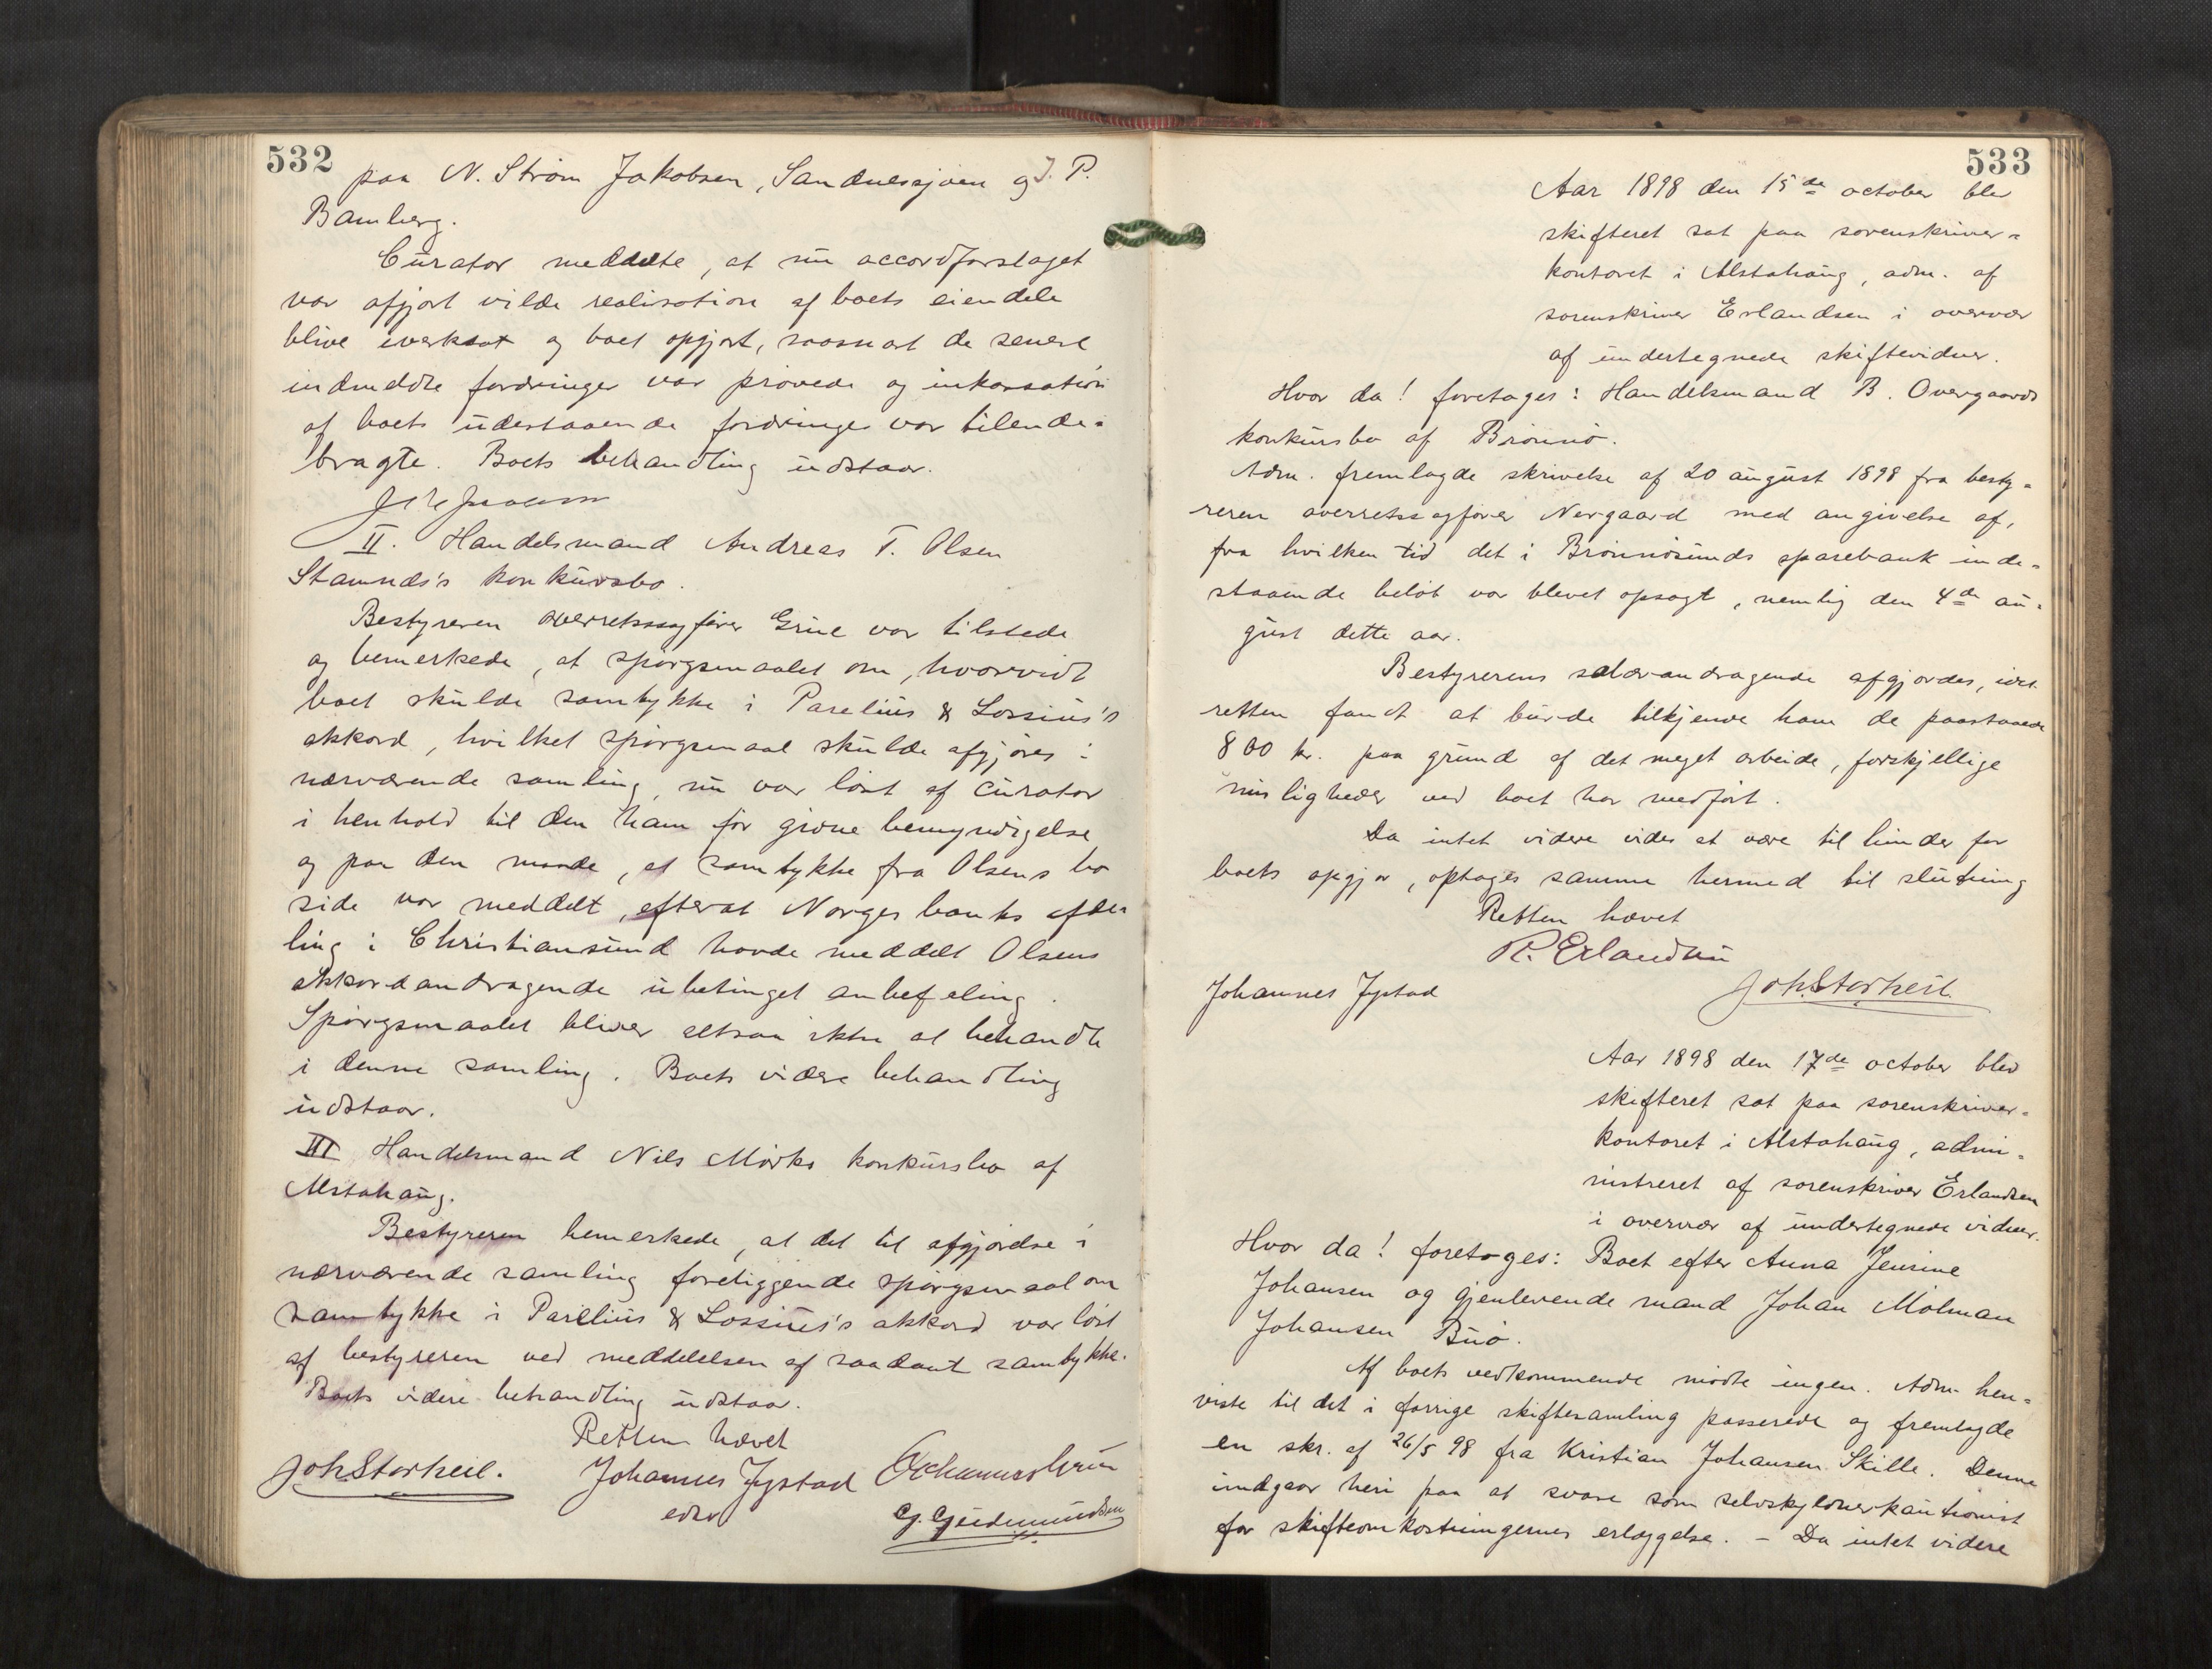 532
paa N. Strøm Jakobsen, Sandnessjøen og J. P.
Bamberg.
Curator meddelte, at nu accordforslaget
var afgjort vilde realisation af boets eiendele
blive iverksat og boet opgjort, saasnart de senere
indmeldte fordringer var prøvede og inkassation
af boets udestaaende fordringer var tilende-
bragte. Boets behandling udstaar.
II. Handelsmand Andreas T. Olsen
Stamnes's konkursbo.
Bestyreren overretssagfører Grüe var tilstede
og bemerkede, at spørgsmaalet om, hvorvidt
boet skulde samtykke i Parelius & Lossius's
akkord, hvilket spørgsmaal skulde afgjøres i
nærværende samling, nu var løst af curator
i henhold til den ham før givne bemyndigelse
og paa den maade, at samtykke fra Olsens bo
side var meddelt, efterat Norges banks afde-
ling i Christiansund havde meddelt Olsens
akkordandragende ubetinget anbefaling.
Spørgsmaalet bliver altsaa ikke at behandle
i denne samling. Boets videre behandling
udstaar.
III Handelsmand Nils Mørks konkursbo af
Alstahaug.
Bestyreren bemerkede, at det til afgjørelse i
nærværende samling foreliggende spørgsmaal om
samtykke i Parelius & Lossius's akkord var løst
af bestyreren ved meddelelsen af saadant samtykke.
Boets videre behandling udstaar.
Retten hævet
Joh. Storheil. Johannes Jystad
G. Gudmundsen
533
Aar 1898 den 15de october blev
skifteret sat paa sorenskriver-
kontoret i Alstahaug, adm. af
sorenskriver Erlandsen i overvær
af undertegnede skiftevidner.
Hvor da! foretages: Handelsmand B. Overgaards
konkursbo af Brønnø.
Adm. fremlagde skrivelse af 20 august 1898 fra besty-
reren overretssagfører Nergaard med angivelse af,
fra hvilken tid det i Brønnøsunds sparebank inde-
staaende beløb var blevet opsagt, nemlig den 4de au-
gust dette aar.
Bestyrerens salærandragende afgjordes, idet
retten fandt at burde tilkjende ham de paastaaede
800 kr. paa grund af det meget arbeide, forskjellige
misligheder ved boet har medført.
Da intet videre vides at være til hinder for
boets opgjør, optages samme hermed til slutning
Retten hævet
R. Erlandsen
Johannes Jystad Joh. Storheil.
Aar 1898 den 17de october blev
skifteret sat paa sorenskriver-
kontoret i Alstahaug, admi-
nistreret af sorenskriver Erlandsen
i overvær af undertegnede vidner.
Hvor da! foretages: Boet efter Anna Jensine
Johansen og gjenlevende mand Johan Molman
Johansen Buø.
Af boets vedkommende mødte ingen. Adm. hen-
viste til det i forrige skiftesamling passerede og fremlagde
en skr. af 26/5 98 fra Kristian Johansen Skille. Denne
indgaar heri paa at svare som selvskyldnerkautionist
for skifteomkostningernes erlæggelse. – Da intet videre